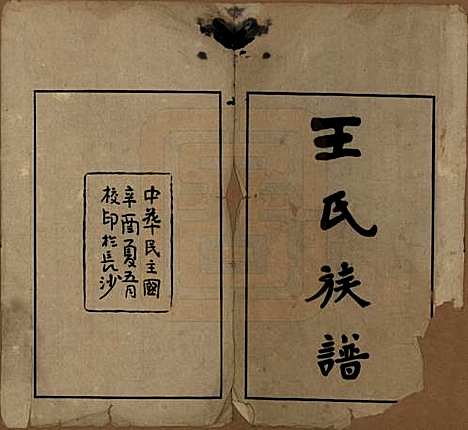 王氏族譜
中華民主國
辛酉夏五月
校印於長沙